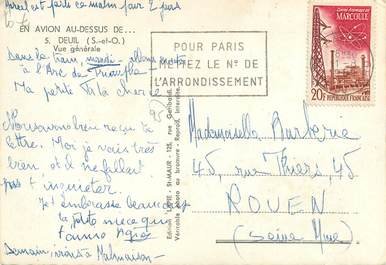 Marcel est parti ce matin pour 2 jours
EN AVION AU-DESSUS DE...
5. DEUIL (S.-et-O.)
Vue générale
Dans le train, allons
à l'Arc de Triomphe
Ma petite Fille chérie
Nous avons bien reçu ta
lettre. Moi je vais très
bien et il ne fallait
pas t'inquiéter.
Je t'embrasse beaucoup
ta petite nièce qui
t'aime
Demain, irons à Malmaison
Edition LAPIE - St-MAUR - 125, rue Garibaldi
Véritable photo au bromure - Reprod. interdite.
POUR PARIS
METTEZ LE N° DE
L'ARRONDISSEMENT
CENTRE ATOMIQUE DE
MARCOULE
20F
RÉPUBLIQUE FRANÇAISE
Mademoiselle
45, rue Thiers, 45
ROUEN
(Seine Mme)